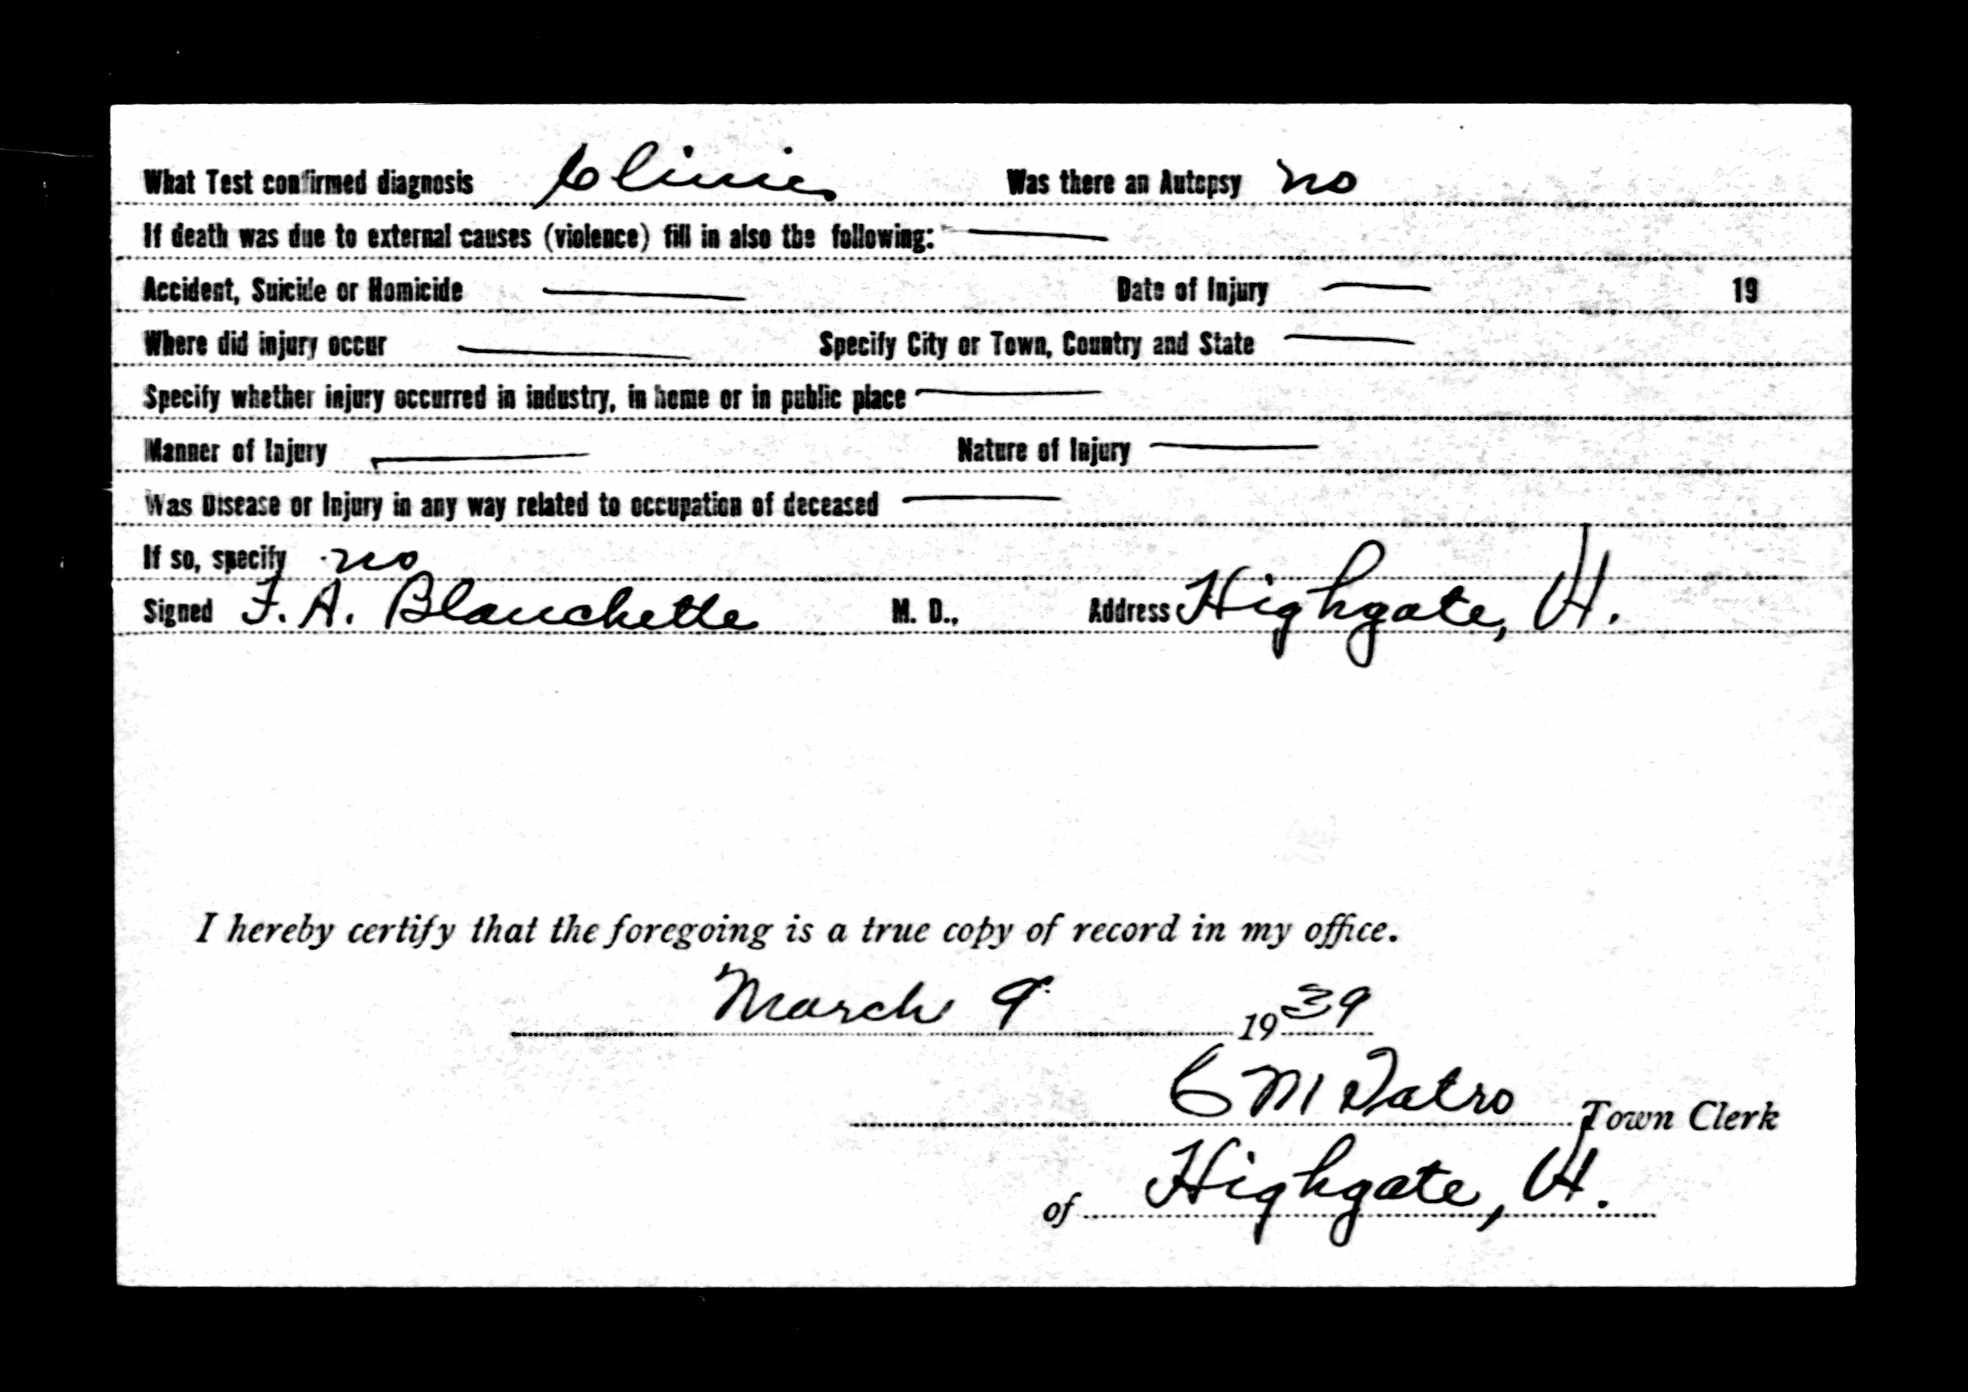 What Test confirmed diagnosis Clinic Was there an Autopsy no
If death was due to external causes (violence) fill in also the following: —
Accident, Suicide or Homicide — Date of Injury — 19
Where did injury occur — Specify City or Town, Country and State —
Specify whether injury occurred in industry, in home or in public place —
Manner of Injury — Nature of Injury —
Was Disease or Injury in any way related to occupation of deceased —
If so, specify no
Signed F. A. Blanchette M. D., Address Highgate, Vt.
I hereby certify that the foregoing is a true copy of record in my office.
March 9 1939
C M Tatro Town Clerk
of Highgate, Vt.